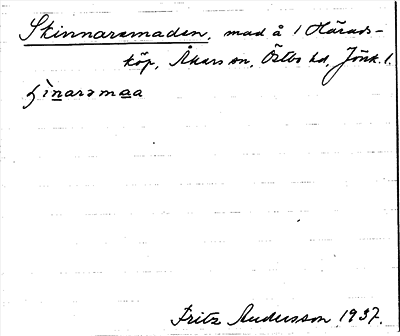 Skinnaremaden, mad å 1 Härads-
köp, Åkers sn, Östbo hd, Jönk. l.
Fritz Andersson 1937.